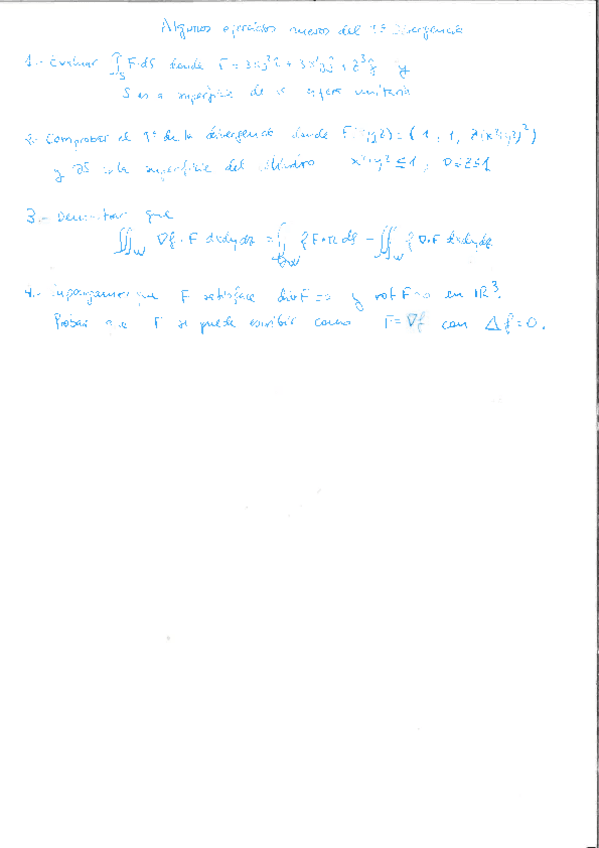 Algunos ejercicios nuevos del Tª Divergencia
1.- Evaluar ∬_S F·dS donde F = 3xy²i + 3x²yj + z³k y
S es la superficie de la esfera unitaria
2.- Comprobar el Tª de la divergencia donde F(xyz) = (1, 1, z(x²+y²)²)
y ∂S es la superficie del cilindro x²+y² ≤ 1, 0≤z≤1
3.- Demostrar que
∭_W ∇f·F dxdydz = ∬_∂W f F·n dS − ∭_W f ∇·F dxdydz
4.- Supongamos que F satisface div F=0 y rot F=0 en ℝ³.
Probar que F se puede escribir como F=∇f con Δf=0.